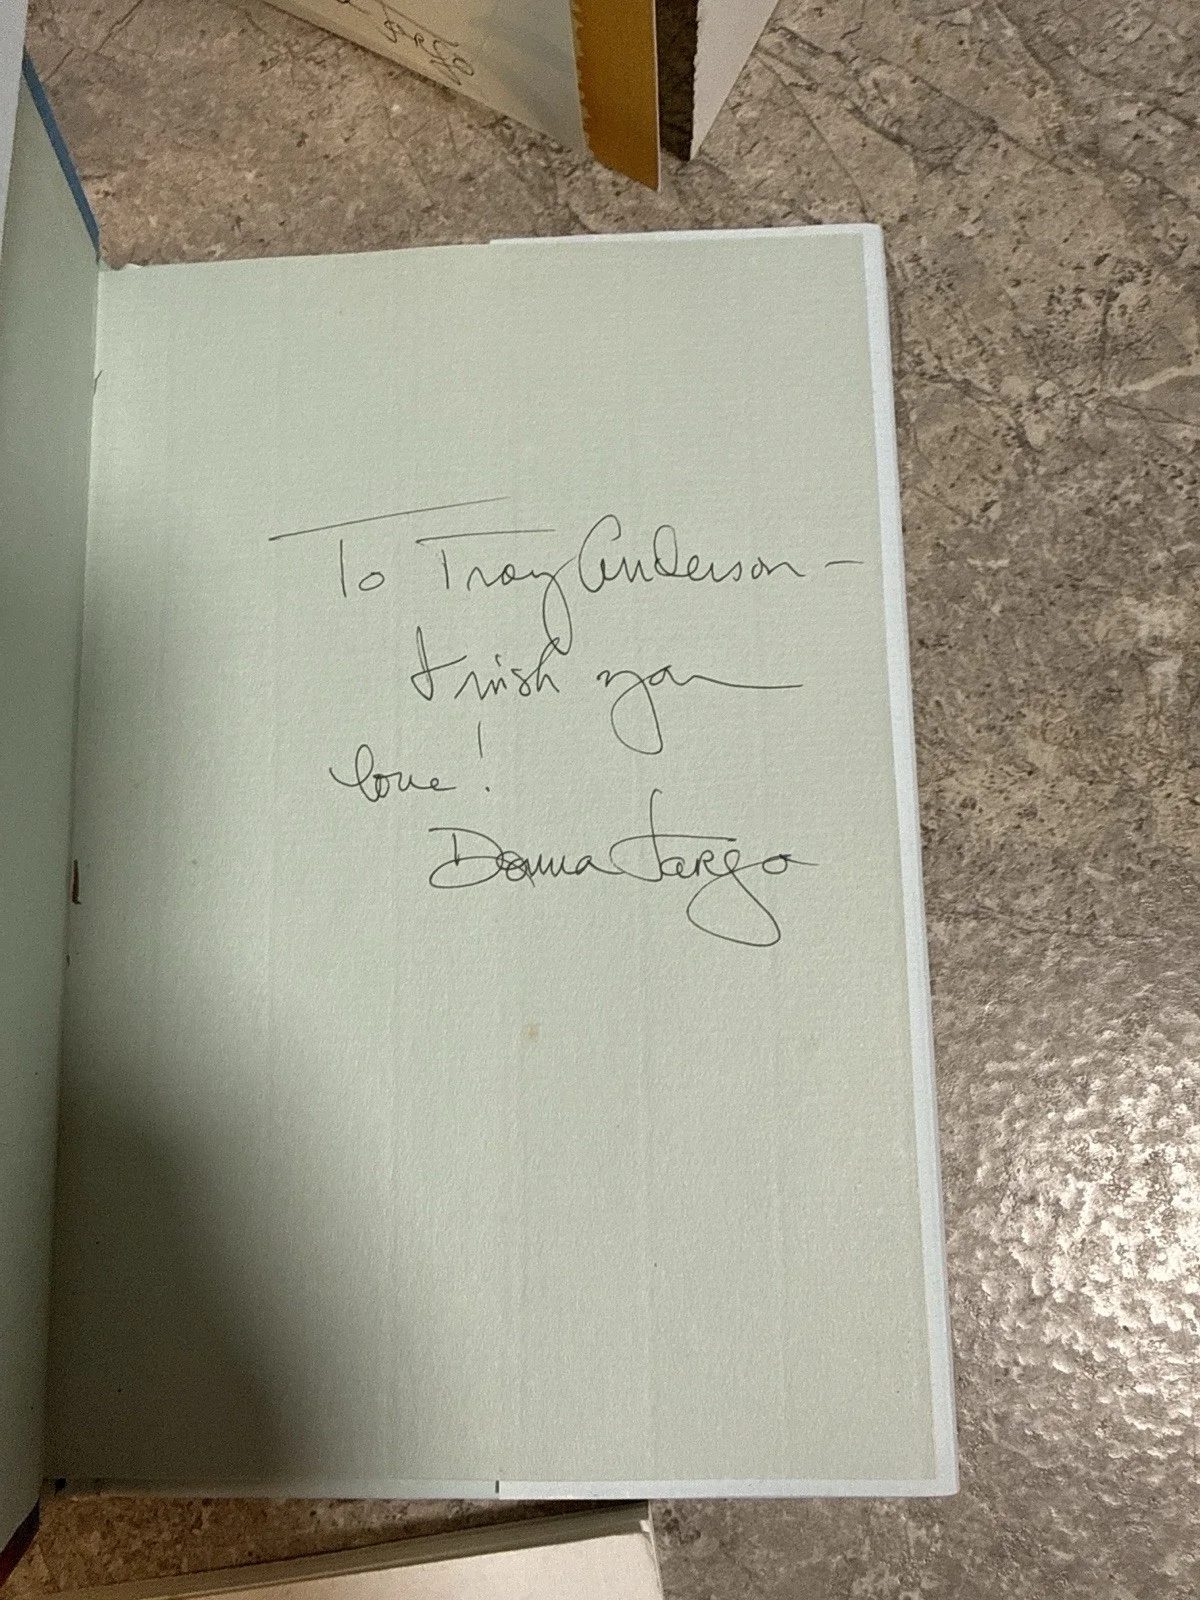 To Troy Anderson –
I wish you
love!
Donna Fargo